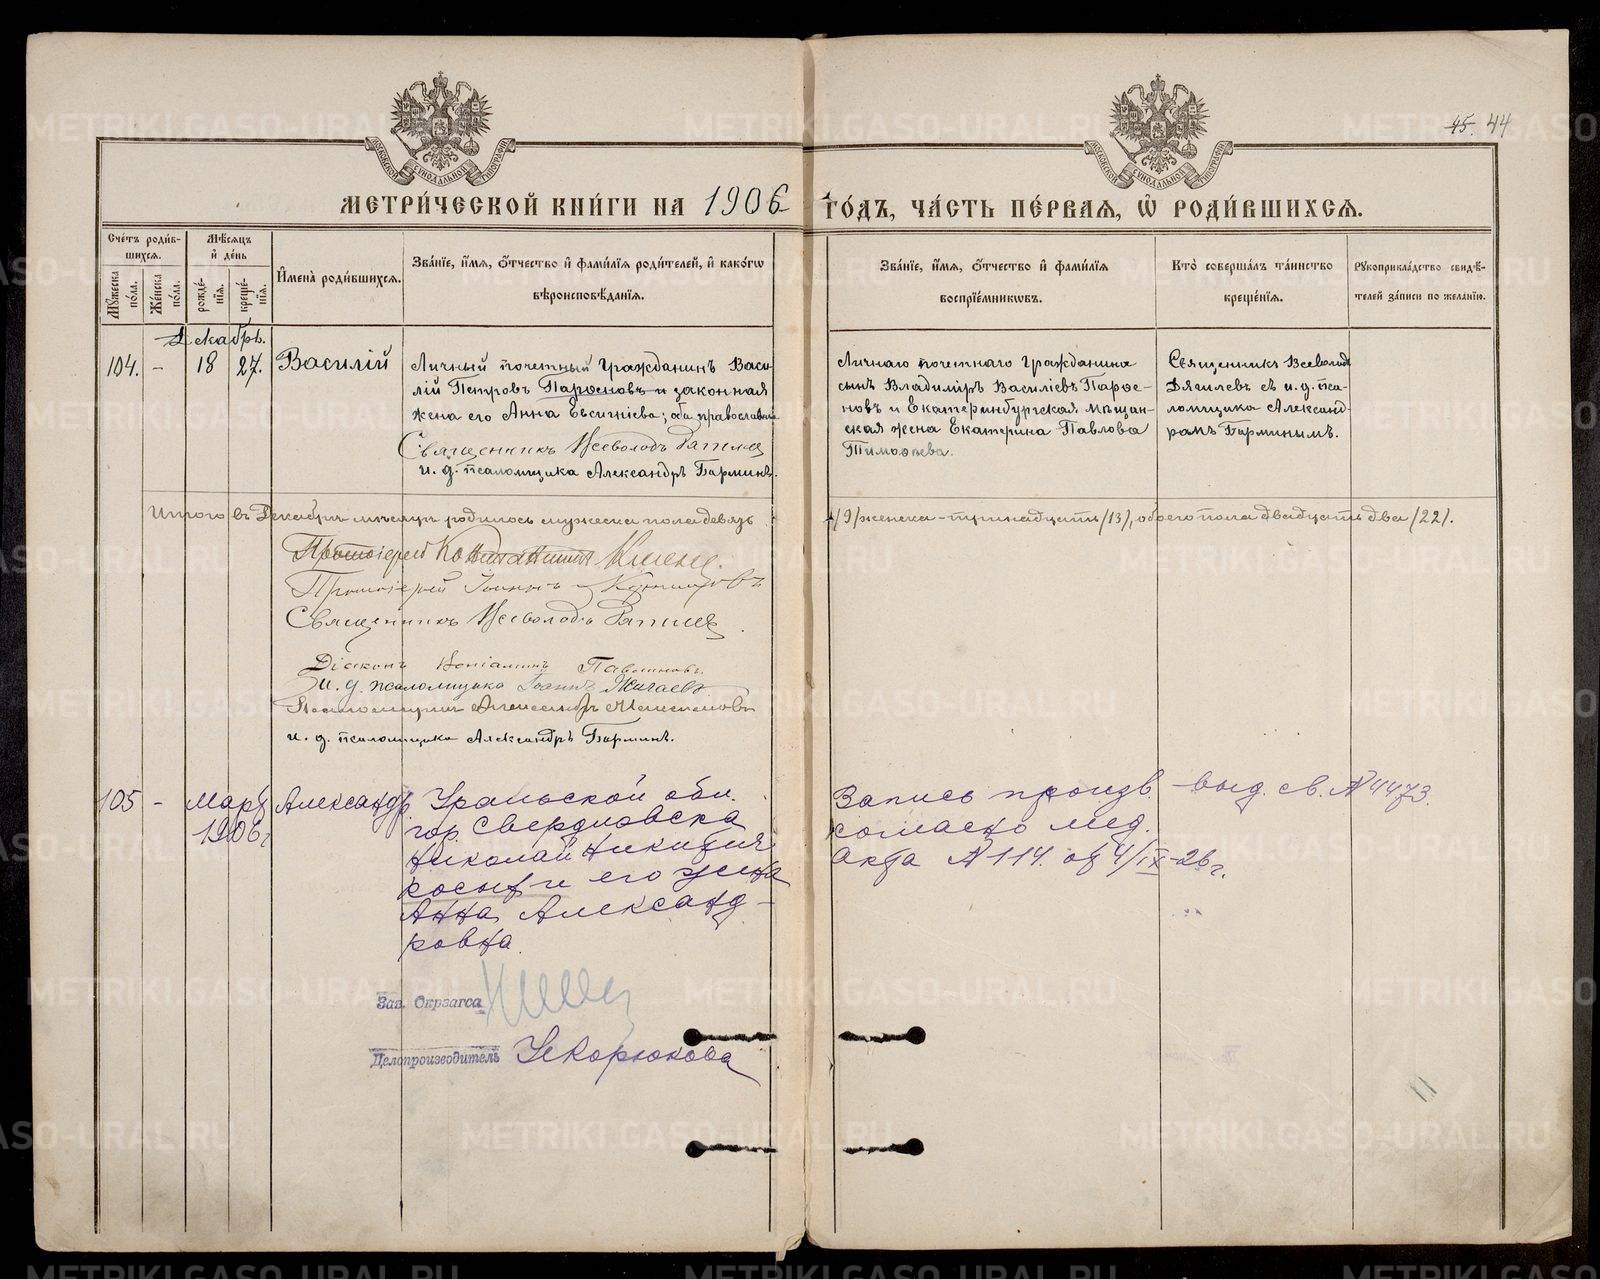 45. 44
МОСКОВСКОЙ СѴНОДАЛЬНОЙ ТИПОГРАФІИ
МОСКОВСКОЙ СѴНОДАЛЬНОЙ ТИПОГРАФІИ
МЕТРИ́ЧЕСКОЙ КНИ́ГИ НА 1906 ГО́ДЪ, ЧА́СТЬ ПЕ́РВАЯ, Ѡ҆ РОДИ́ВШИХСЯ.
Сче́тъ роди́в-
шихся.
Мꙋ́жеска по́ла.
Же́нска по́ла.
Мѣ́сяцъ
и҆ де́нь
рожде́-
нїя.
креще́-
нїя.
И҆мена̀ роди́вшихся.
Зва́нїе, и҆́мя, ѻ҆́тчество и҆ фами́лїя роди́телей, и҆ како́гѡ
вѣроисповѣ́данїя.
Зва́нїе, и҆́мя, ѻ҆́тчество и҆ фами́лїя
воспрїе́мниковъ.
Кто̀ соверша́лъ та́инство
креще́нїя.
Рꙋкоприкла́дство свидѣ́-
телей за́писи по жела́нїю.
Декабрь.
104. - 18 27. Василій
Личный почетный гражданинъ Васи-
лій Петровъ Парѳеновъ и законная
жена его Анна Евсигніева; оба православные
Священникъ Всеволодъ Дягилев
и. д. псаломщика Александръ Барминъ.
Личнаго почетнаго гражданина
сынъ Владиміръ Василіевъ Парѳе-
новъ и Екатеринбургская мѣщан-
ская жена Екатерина Павлова
Тимоѳеева.
Священникъ Всеволодъ
Дягилевъ съ и. д. пса-
ломщика Александ-
ромъ Барминымъ.
Итого въ Декабрѣ мѣсяцѣ родилось мужеска пола девять
/9/ женска - тринадцать /13/, обоего пола двадцать два /22/.
Протоіерей
Протоіерей Іоаннъ
Священникъ Всеволодъ Дягилев
Діаконъ Веніаминъ
И. д. псаломщика Іоаннъ
Псаломщикъ Александръ
и. д. псаломщика Александръ Барминъ.
105 - март Александр
1906 г
Уральской обл.
гор. Свердловска
Николай Никитич
и его жена
Анна Александ-
ровна.
Запись произв. выд. св. № 4473.
согласно мед.
акта № 114. от 4/IX-26 г.
Зав. Окрзагса
Делопроизводитель
METRIKI.GASO-URAL.RU